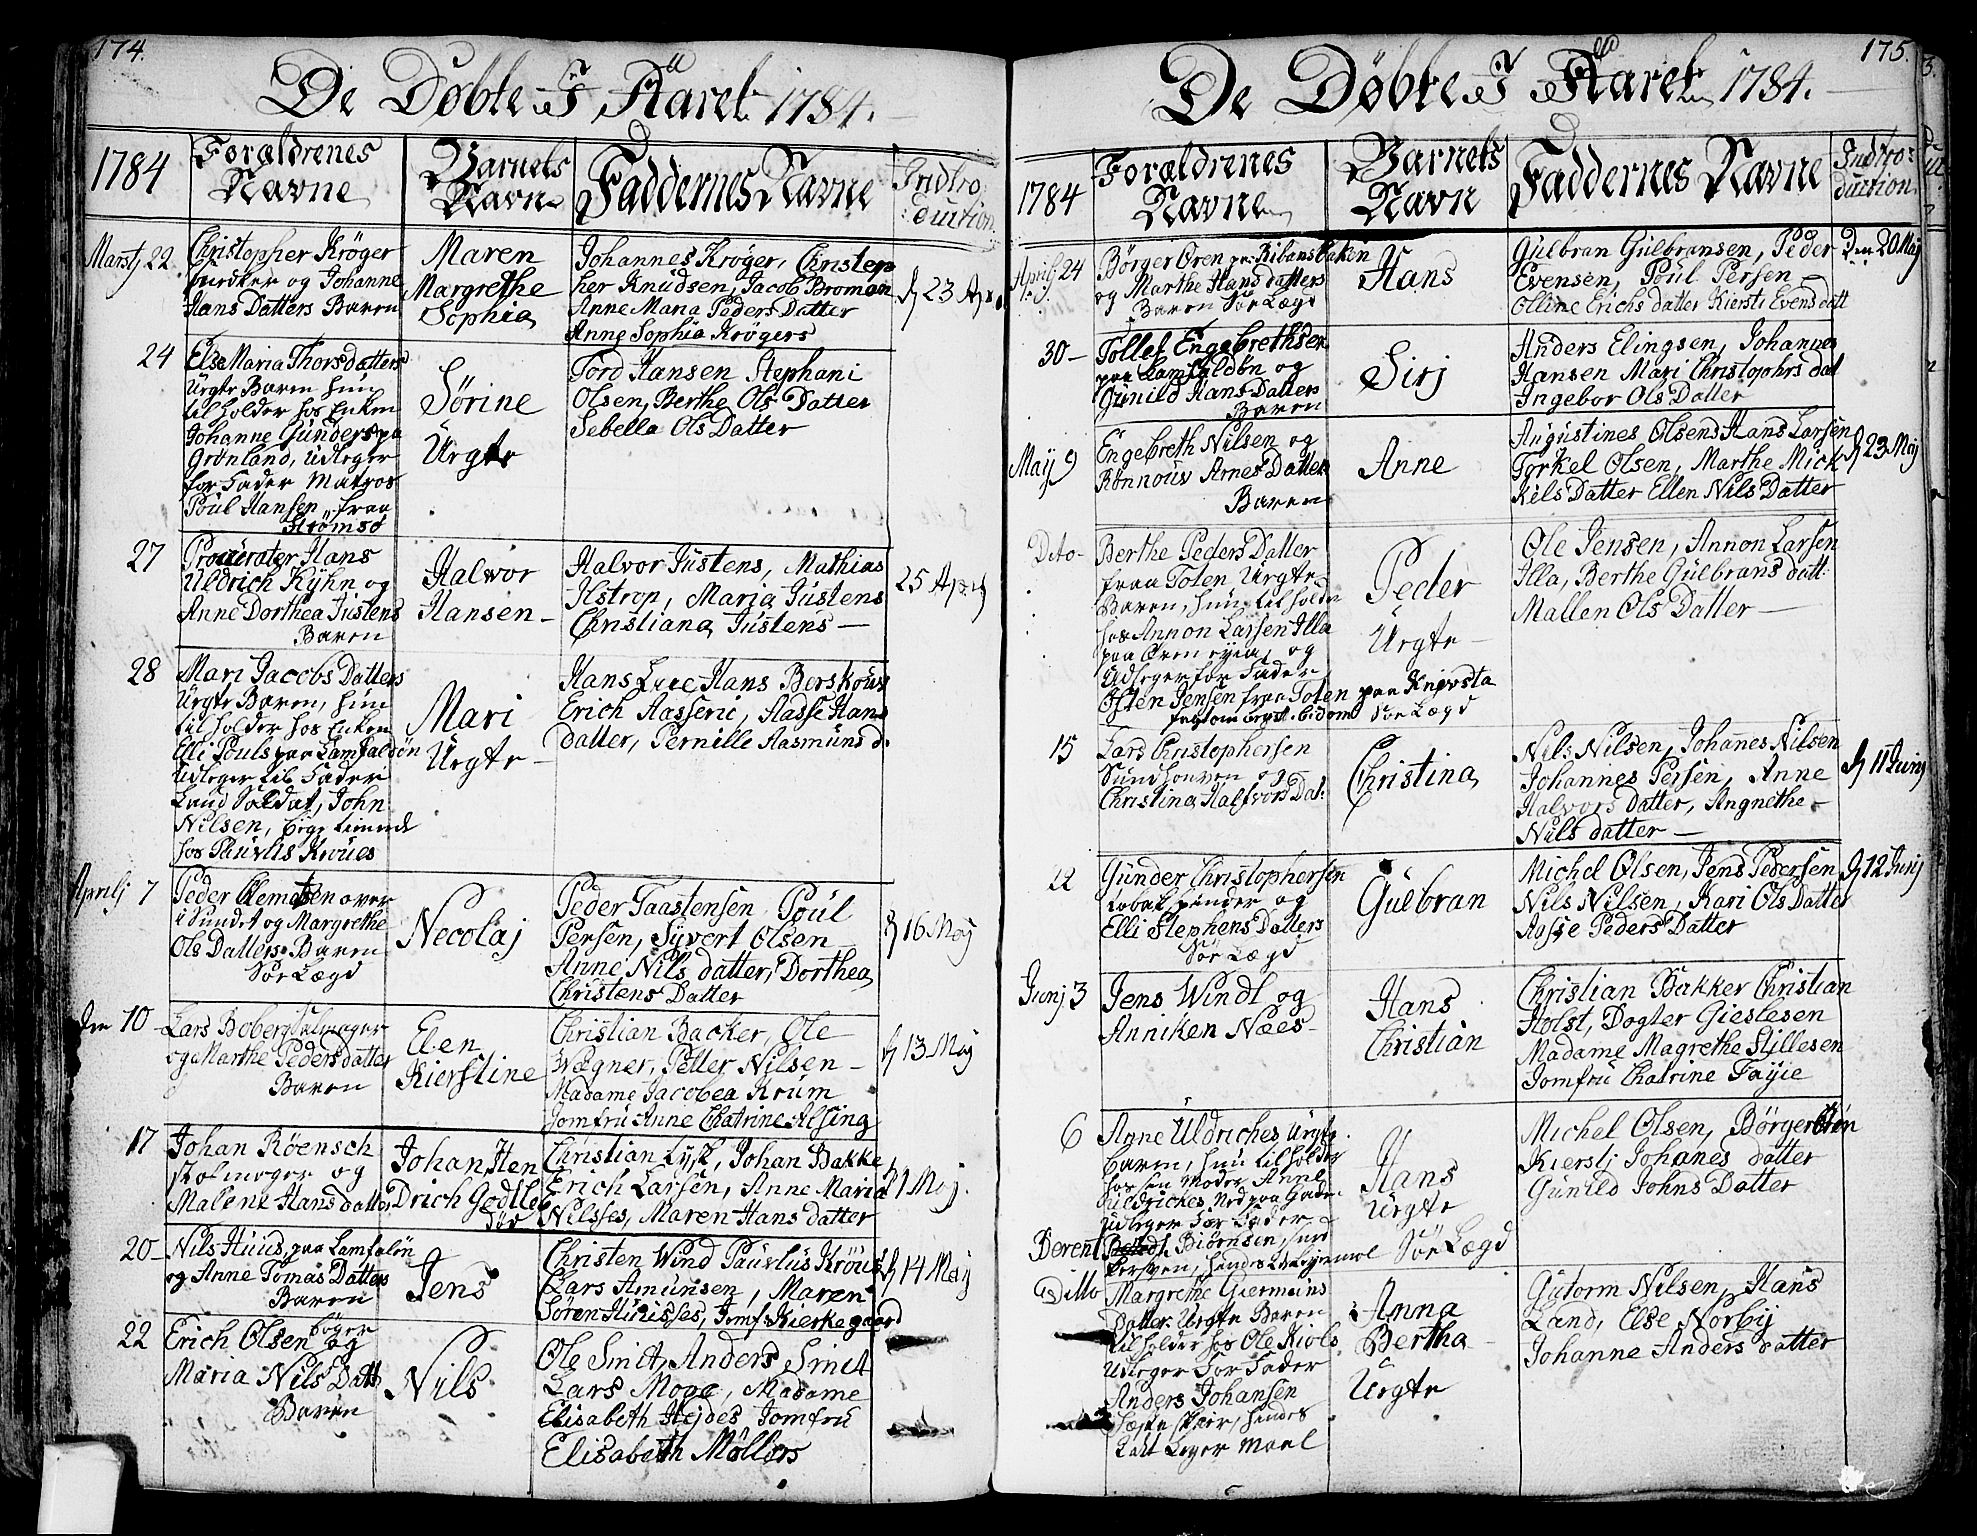 174.
De Döbte I Aaret 1784.
1784
Forældrenes Navne
Barnets Navn
Faddernes Navne
Introduction
Martj 22
Christopher Kröger
og Johanne
Hans Datters Baren
Maren
Margrethe
Sophia
Johannes Kröger, Christop
her Knudsen, Jacob Broman
Anne Maria Peders Datter
Anne Sophia Krögers
23 Apr
24
Else Maria Thorsdatters
Urgte Baren hun
til holder hos Enken
Johanne Gunders paa
Grønland, Udleger
for Fader Matros
Poul Hansen fraa
Strömsö
Sörine
Urgte
Tord Hansen Stephani
Olsen, Berthe Ols Datter
Sebella Ols Datter
27
Procurater Hans
Uldrich Kyhn og
Anne Dorthea Justens
Baren
Halvor
Hansen
Halvor Justens, Mathias
Ilstrop, Maria Justens
Christiana Justens
25 April
28
Mari Jacobs Datters
Urgte Baren, hun
til holder hos Enken
Elli Pouls paa Lamfaldön
Udleger til Fader
Land Soldat, John
Nilsen,
hos Paurlis Kroues
Mari
Urgte
Hans Lyce Hans Berskoūv
Erich Aasseric, Aasse Hans
datter, Pernille Aasmuns d.
Aprilj 7
Peder Clemetsen over
i Sundet og Margrethe
Ols Datters Baren
Sör Lægd
Necolaj
Peder Taastensen Poul
Persen, Syvert Olsen
Anne Nils datter, Dorthea
Christens Datter
16 Maj
Den 10
Lars Boberg
og Marthe Pedersdatter
Baren
Elen
Kierstine
Christian Backer, Ole
Wægner, Petter Nilsen
Madame Jacobea Krum
Jomfru Anne Chatrine Alsing
13 Maj
17
Johan Röensch
skolmager og
Malene Hansdatter
Johan Hen
Drich Godtleb
Sör
Christian Lysk, Johan Bakke
Erich Larsen, Anne Maria
Nilsses, Maren Hans datter
1 Maj.
20
Nils Huus, paa Lamfalön
og Anne Tomas Datters
Baren
Jens
Christen Wind Paurlus Kröus
Lars Amunsen, Maren
Sören Hinisses, Jomf Kierkegaard
14 Maj
22
Erich Olsen böger og
Maria Nils Datt
Baren
Nils
Ole Smit, Anders Smit
Lars Moge, Madame
Elisabeth Hejdes, Jomfru
Elisabeth Möllers
175.
De Döbte I Aaret 1784.
1784
Forældrenes Navne
Barnets Navn
Faddernes Navne
Introduction
April 24
Börger Ören paa Ribansbaken
og Marthe Hans datters
Baren Sör Lægd
Hans
Gulbran Gulbransen, Peder
Evensen, Poul Persen
Olline Erichs datter Kiersti Evensdatt
Den 20 Maj
30
Tollef Engebrethsen
paa Lamfaldön og
Gunild Hans Datters
Baren
Sirj
Anders Elingsen, Johannes
Hansen Mari Christophrs dat
Ingebor Ols Datter
Maij 9
Engebreth Nilsen og
Rönnouv Arnes Datters
Baren
Anne
Augustines Olsens Hans Larsen
Torkel Olsen, Marthe Mick
kels Datter Ellen Nils Datter
23 Maj
Dito
Berthe Peders Datter
fraa Toten Urgte
Baren, hun til holder
hos Annon Larsen Illa
paa og
Udleger for Fader
Osten Jensen fraa Toten paa Knivsta
Sör Lægd
Peder
Urgte
Ole Jensen, Annon Larsen
Illa, Berthe Gulbrans datt:
Mallen Ols Datter
15
Lars Christophersen
Sundhouven og
Christina Halfvors Dat:
Christina
Nils Nilsen, Johanes Nilsen
Johannes Persen, Anne
Halvors datter, Angnethe
Nils datter
11 Junj
22
Gunder Christophersen
tobak spinder og
Elli Stephens Datters
Sör Lægd
Gulbran
Michel Olsen, Jens Pedersen
Nils Nilsen, Kari Ols Datter
Aasse Peders Datter
12 Junj
Junj 3
Jens Windt og
Anniken Næes
Hans
Christian
Christian Bakker Christian
Holst, Dogter Giestesen
Madame Magrethe Stillesen
Jomfru Chatrine Fayie
6
Anne Uldriches Urgte
baren, hun til holder
hos sin Moder Anne
Uldriches Ned paa Gaden
Udleger For Fader
Berent Biörnsen,
Hans
Urgte
Sör Lægd
Michel Olsen, Börger Ören
Kierstj Johanes datter
Gunild Johns Datter
Ditto
Margrethe Giermuns
Datter Urgte Baren
til holder hos Ole Kiols
Udleger For Fader
Anders Johansen
Anna
Bertha
Urgte
Gutorm Nilsen, Hans
Land, Else Norbÿ
Johanne Anders datter